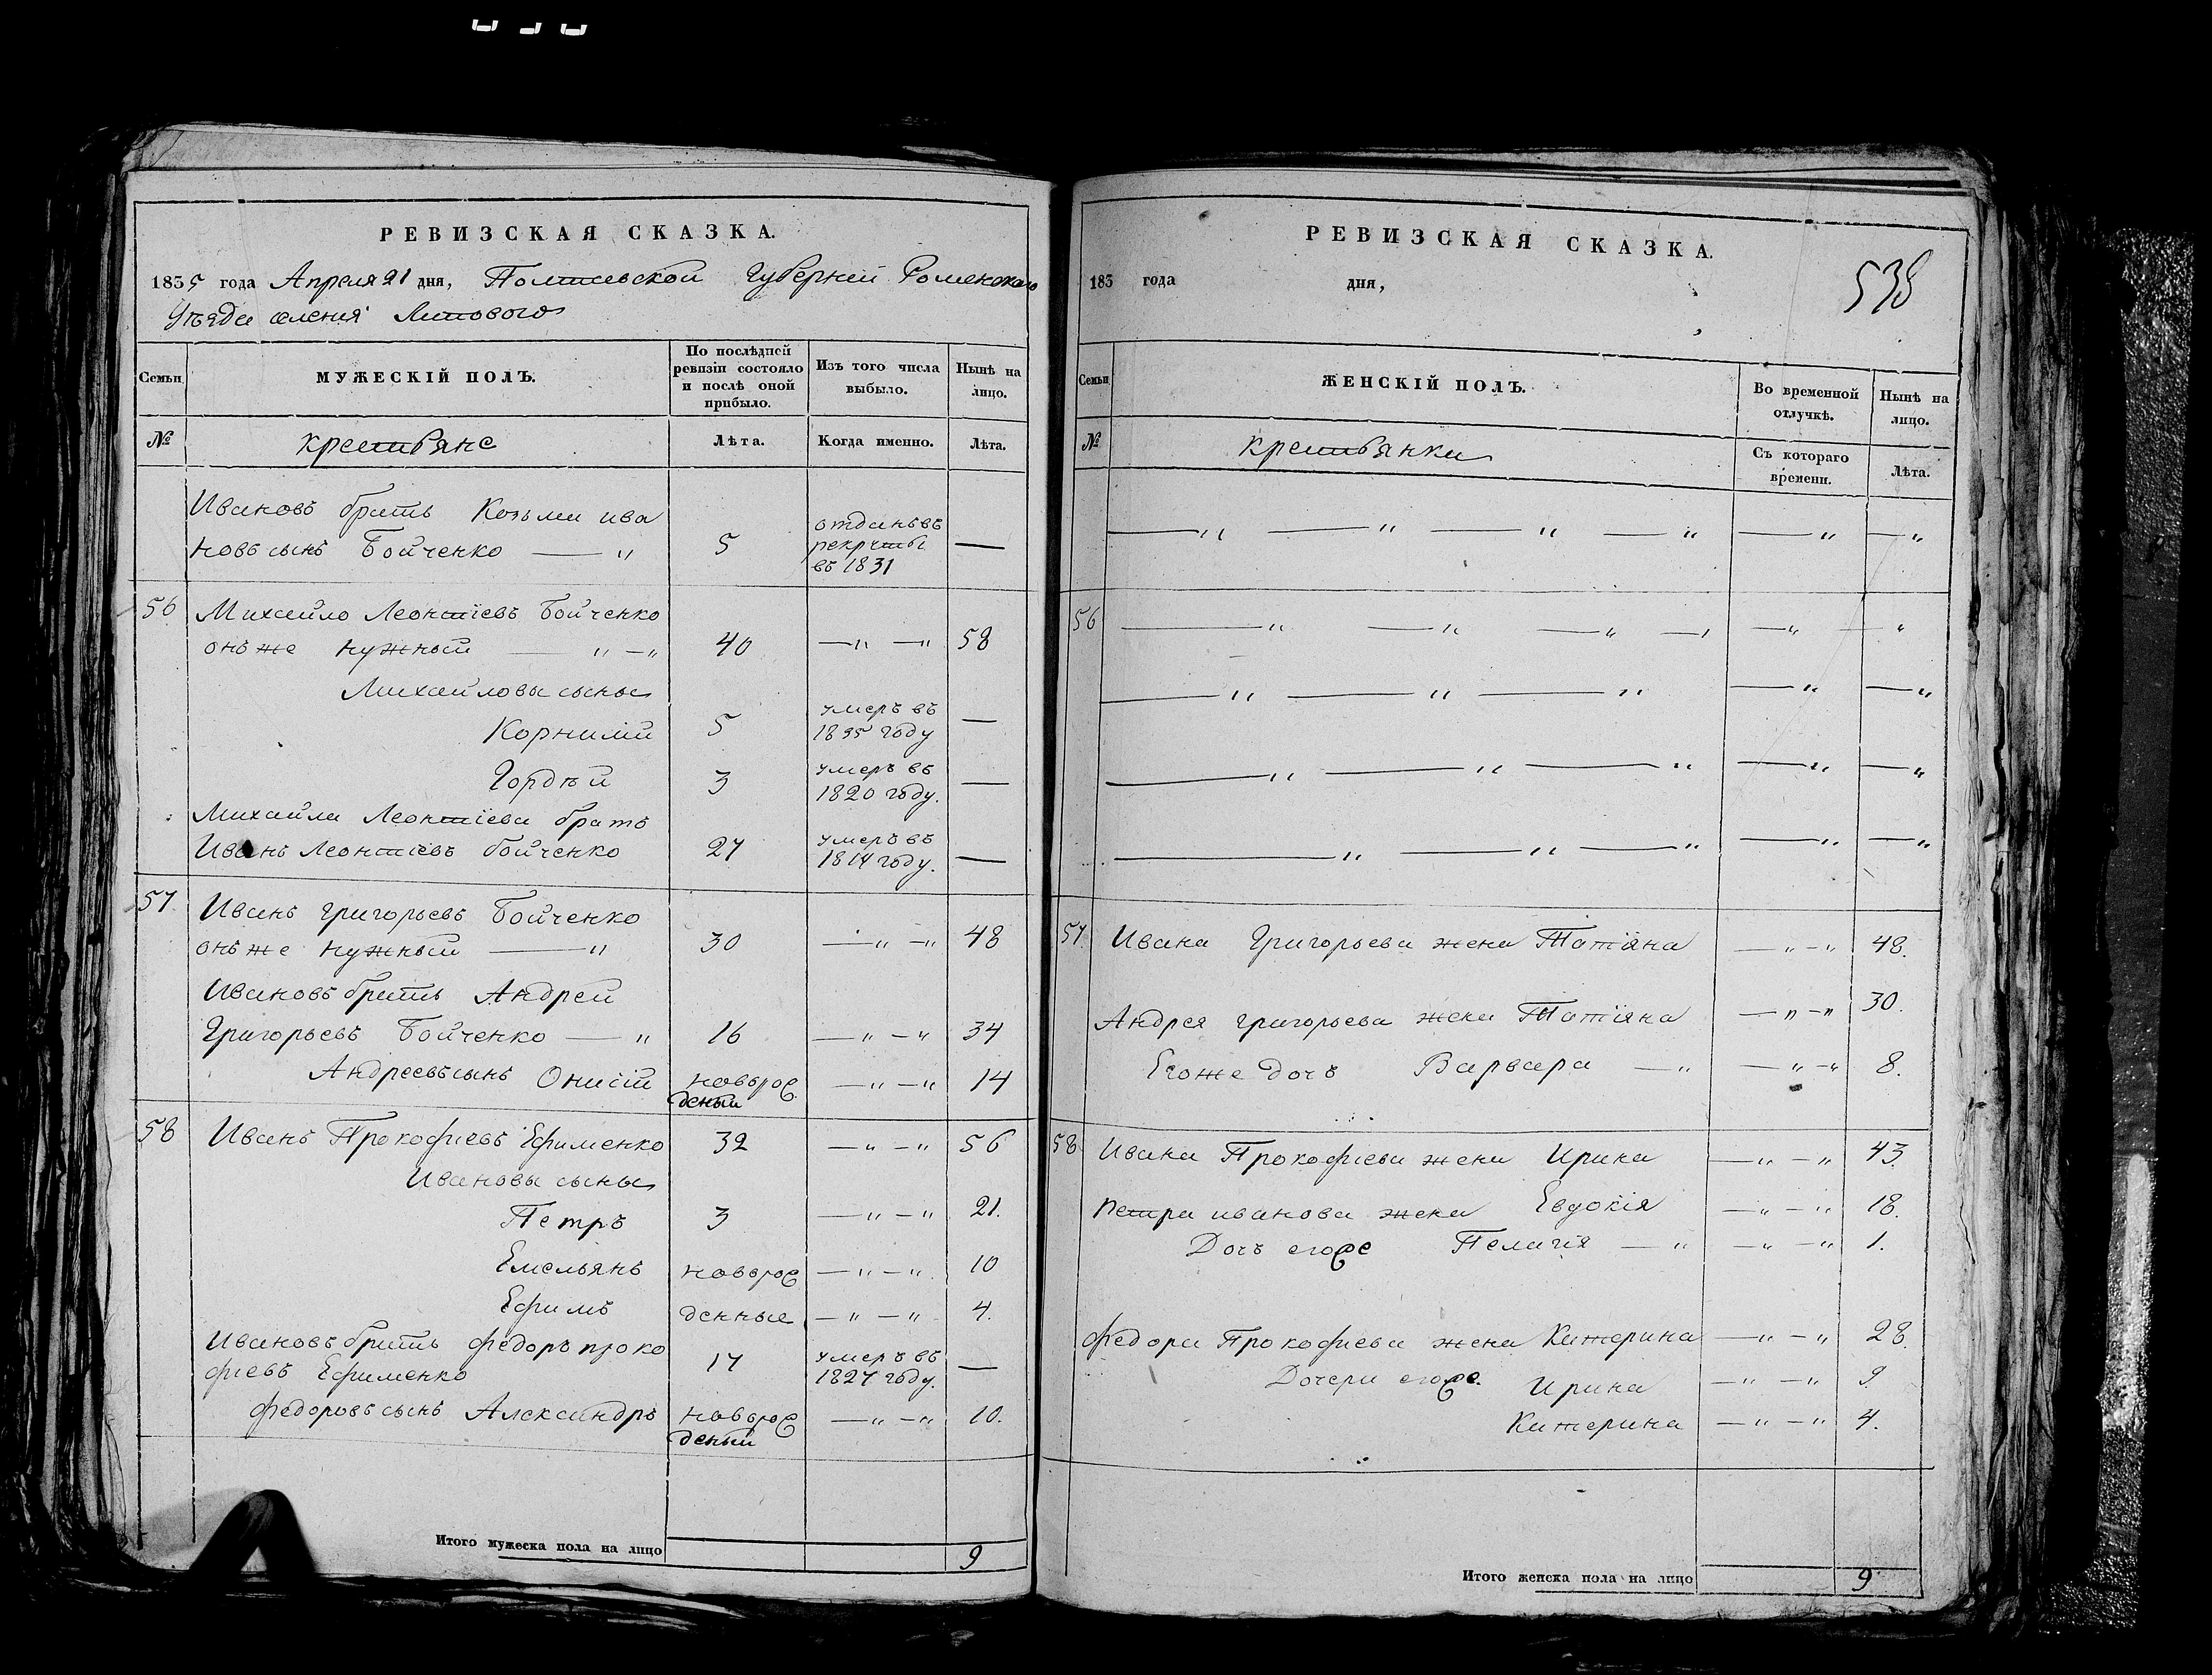 РЕВИЗСКАЯ СКАЗКА.
1835 года Апреля 21 дня, Полтавской Губерніи Роменскаго
Уѣзда селенія Липового
Семьи
МУЖЕСКІЙ ПОЛЪ.
По послѣдней
ревизіи состояло
и послѣ оной
прибыло.
Изъ того числа
выбыло.
Нынѣ на
лицо.
№
крестьяне
Лѣта.
Когда именно.
Лѣта.
Ивановъ братъ Козьма ива
новъ сынъ Бойченко — „ 5 отданъ въ
рекруты
въ 1831 —
56 Михайло Леонтіевъ Бойченко
онъ же Нужный — „ — „ 40 — „ — „ 58
Михайловы сыны
Корнилій 5 умеръ въ
1835 году —
Гордѣй 3 умеръ въ
1820 году. —
Михайла Леонтіева братъ
Иванъ Леонтіевъ Бойченко 27 умеръ въ
1814 году. —
57. Иванъ Григорьевъ Бойченко
онъ же Нужный — „ 30 — „ — „ 48
Ивановъ братъ Андрей
Григорьевъ Бойченко — „ 16 — „ — „ 34
Андреевъ сынъ Онисій новорож
деный — „ — „ 14
58 Иванъ Прокофіевъ Ефименко 32 — „ — „ 56
Ивановы сыны
Петръ 3 — „ — „ 21.
Емельянъ новорож — „ — „ 10
Ефимъ денные — „ — „ 4.
Ивановъ братъ Федоръ проко
фіевъ Ефименко 17 умеръ въ
1827 году. —
Федоровъ сынъ Александръ новорож
деный — „ — „ 10.
Итого мужеска пола на лицо 9
РЕВИЗСКАЯ СКАЗКА.
183 года дня,
538
Семьи
ЖЕНСКІЙ ПОЛЪ.
Во временной
отлучкѣ.
Нынѣ на
лицо.
№
крестьянки
Съ котораго
времени.
Лѣта.
— „ — „ — „ — „ — „ — „
56 — „ — „ — „ — „ — „ — „
— „ — „ — „ — „ — „
— „ — „ — „ — „ — „
— „ — „ — „ — „ — „
57. Ивана Григорьева жена Татіяна — „ — „ 48.
Андрея григорьева жена Татіяна — „ — „ 30.
Егоже дочъ Варвара — „ — „ — „ 8.
58 Ивана Прокофіева жена Ирина — „ — „ 43.
Петра иванова жена Евдокія — „ — „ 18.
Дочъ егоже Пелагія — „ — „ — „ 1.
Федора Прокофіева жена Катерина — „ — „ 28.
Дочери егоже. Ирина — „ — „ 9.
Катерина — „ — „ 4.
Итого женска пола на лицо 9